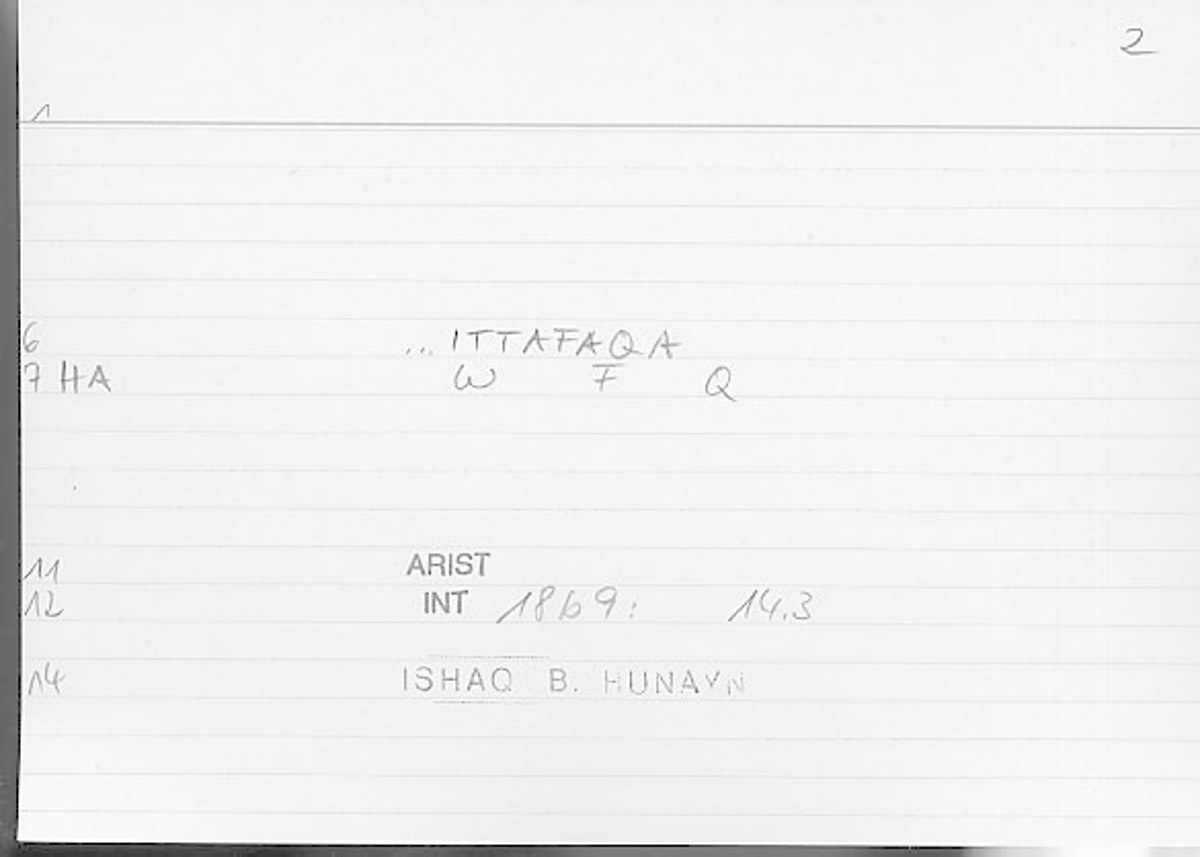 2
1
6 ... ITTAFAQA
7 HA W F Q
11 ARIST
12 INT 1869: 14.3
14 ISHAQ B. HUNAYN